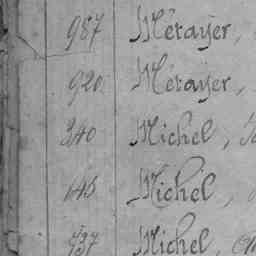 987 Métayer,
920 Métayer,
340 Michel,
645 Michel,
737 Michel,